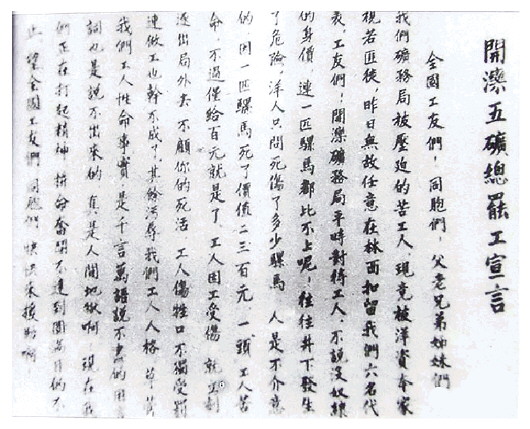 開灤五礦總罷工宣言
全國工友們,同胞們,父老兄弟姊妹們
我們礦務局被壓迫的苦工人,現竟被洋資本家
視若匪徒,昨日無故任意在林西扣留我們六名代
表,工友們,開灤礦務局平時對待工人,不說沒奴隸
的身價,連一匹騾馬都比不上呢,往往井下發生
了危險,洋人只問死傷了多少騾馬 人是不介意
的,因一匹騾馬死了價值二三百元,一頭 工人苦
命,不過僅給百元就是了,工人因工受傷 就
逐出局外去 不顧你的死活,工人傷牲口不獨受罰
連做工也幹不成了,其餘污辱我們工人人格 草菅
我們工人性命事實,是千言萬語說不盡的 用言
詞也是說不出來的,真是人間地獄啊,現在我
們正在打起精神 拚命奮鬥 不達到圓滿目的不
止,望全國工友們 同胞們 快快來援助啊